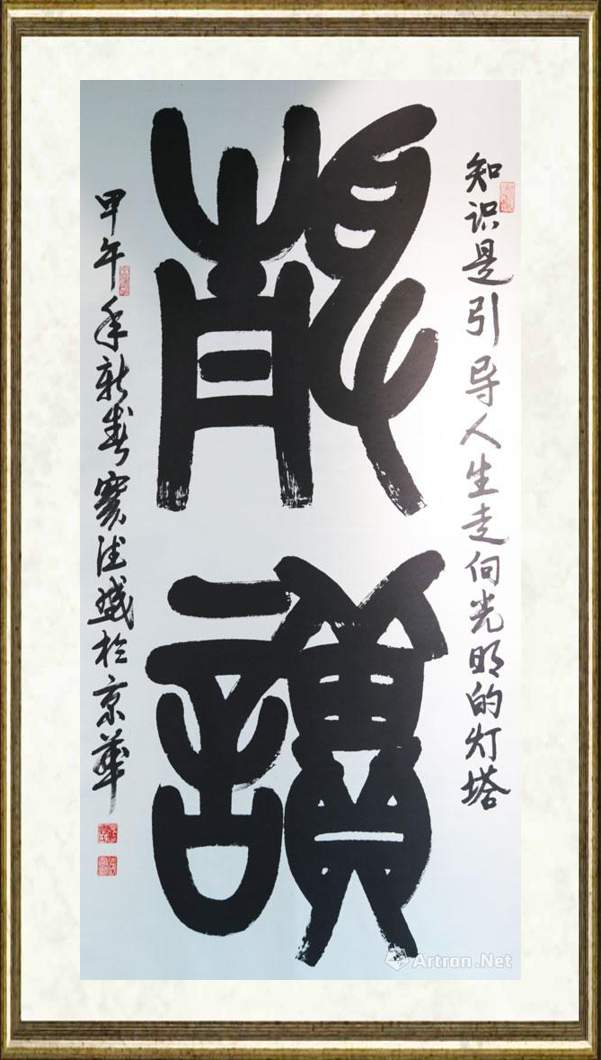 知识是引导人生走向光明的灯塔
靜讀
甲午年新春德於京華
Artron.Net